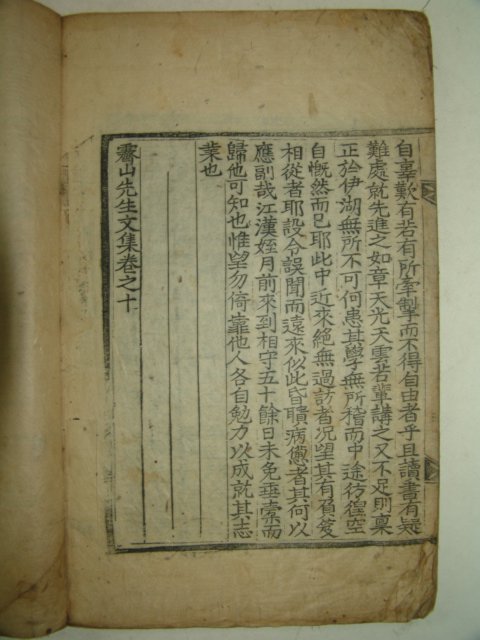 自辜歎有若有所牽掣而不得自由者乎且讀書有疑
難處就先進之如章天光天雲若輩講之又不足則稟
正於伊湖無所不可何患其學無所稽而中途彷徨空
自慨然而已耶此中近來絶無過訪者況望其有負笈
相從者耶設令誤聞而遠來似此昏聵病憊者其何以
應副哉江漢姪月前來到相守五十餘日未免垂橐而
歸他可知也惟望勿倚靠他人各自勉力以成就其志
業也
霽山先生文集卷之十